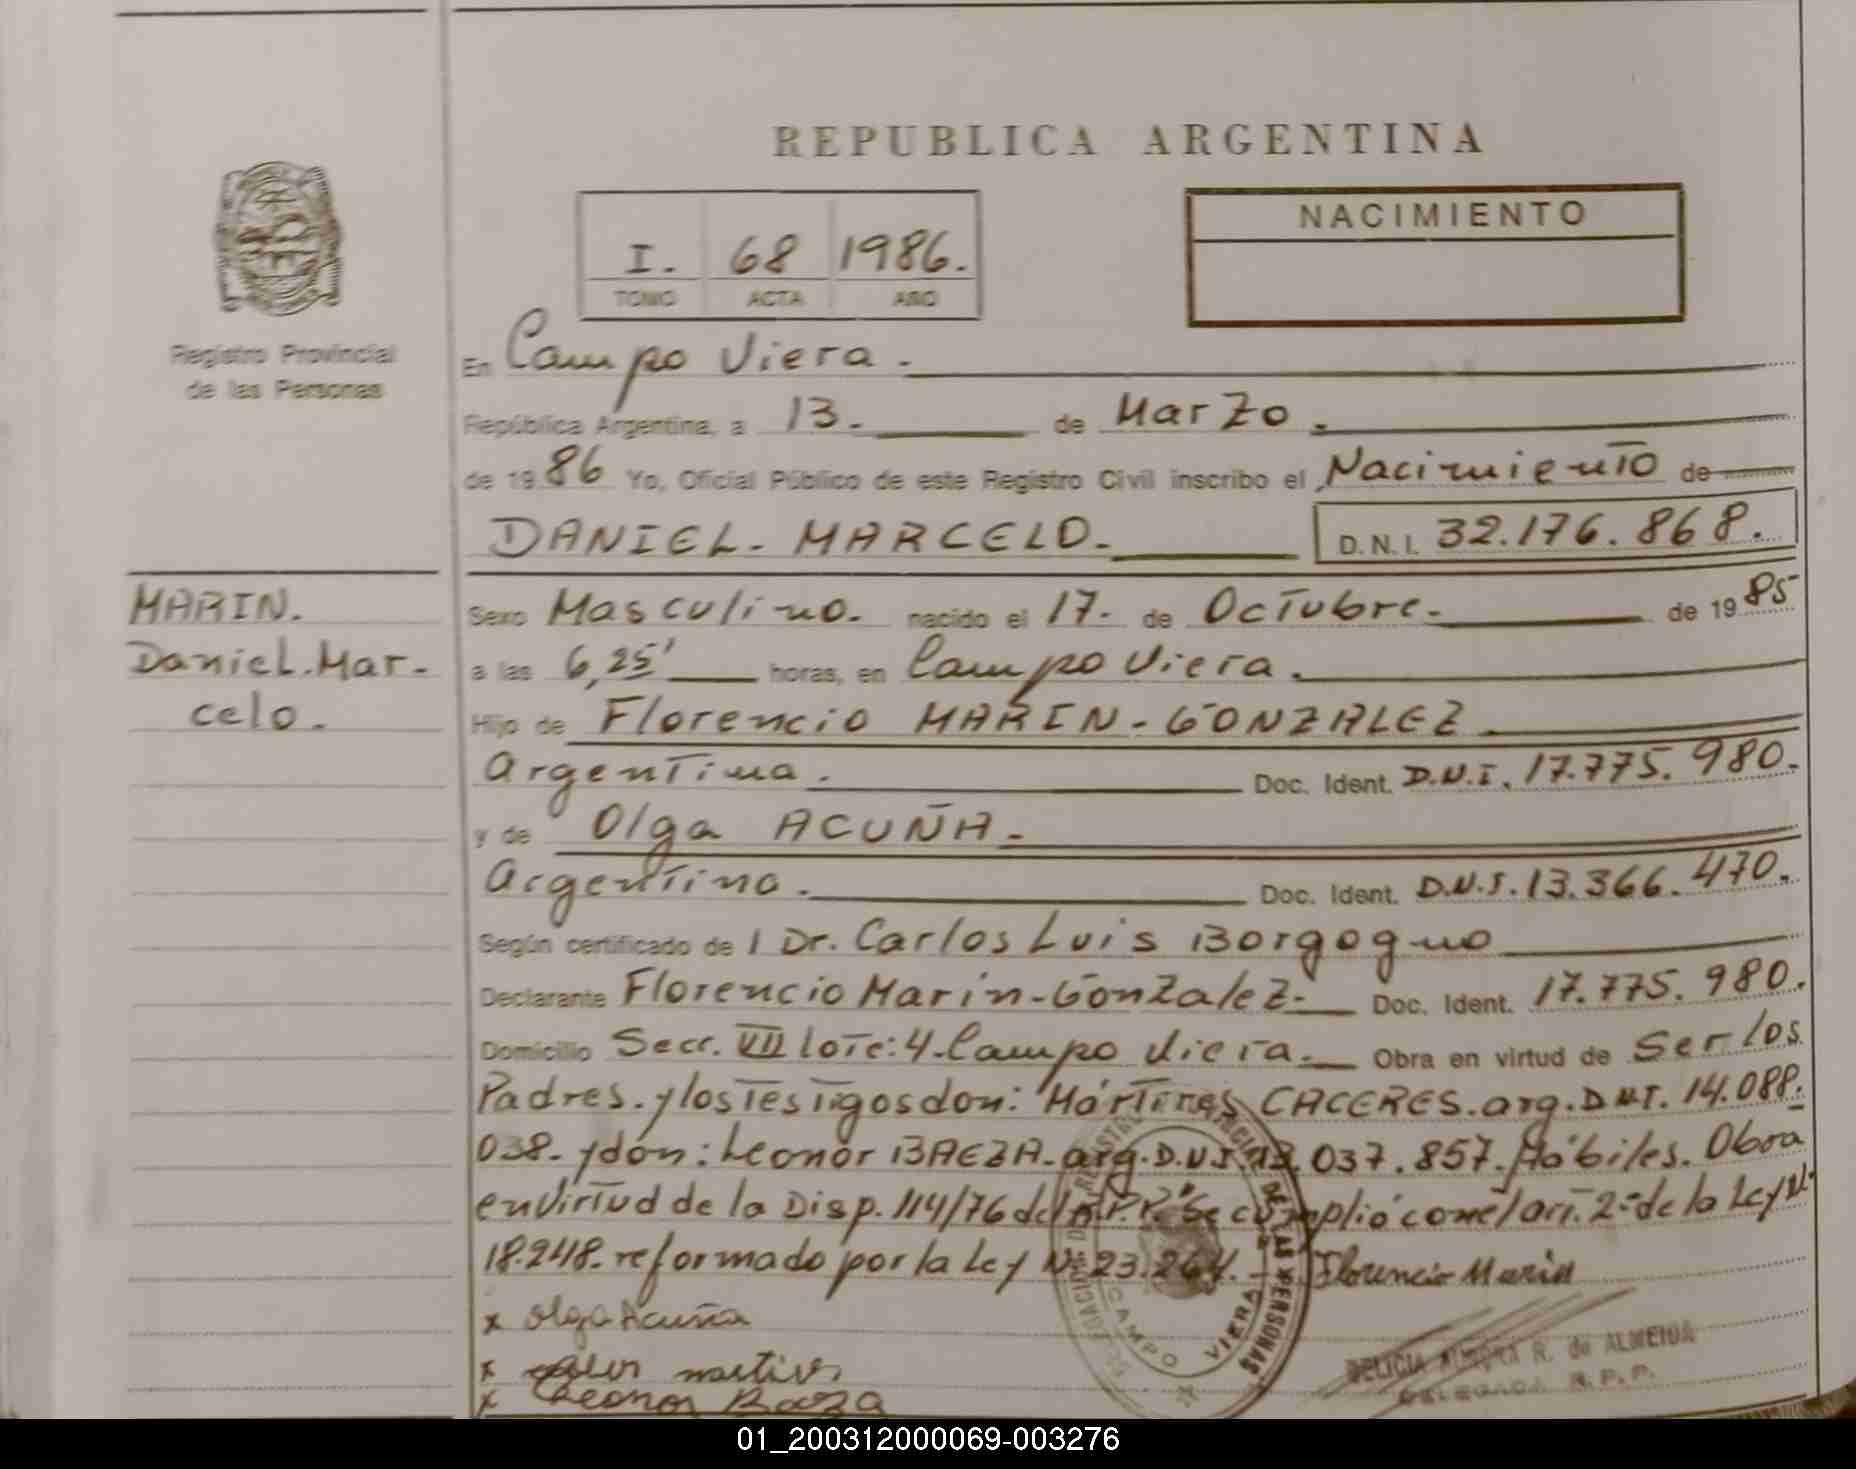 REPUBLICA ARGENTINA
I. 68 1986.
TOMO ACTA AÑO
NACIMIENTO
Registro Provincial
de las Personas
En Campo Viera.
República Argentina, a 13. de Marzo.
de 1986 Yo, Oficial Público de este Registro Civil inscribo el Nacimiento de
DANIEL. MARCELO. D.N.I. 32.176.868.
MARIN.
Daniel.Mar-
celo.
Sexo Masculino. nacido el 17. de Octubre. de 1985
a las 6,25' horas, en Campo Viera.
Hijo de Florencio MARIN-GONZALEZ
argentina. Doc. Ident. D.N.I. 17.775.980.
y de Olga ACUÑA.
argentina. Doc. Ident. D.N.I. 13.366.470.
Según certificado de l Dr. Carlos Luis Borgogno
Declarante Florencio Marin-Gonzalez. Doc. Ident. 17.775.980.
Domicilio Secc. VII lote:4.Campo Viera. Obra en virtud de Ser los
Padres. y los Testigos don: CACERES. arg. D.N.I. 14.088.
038. y don: Leonor BAEZA. arg. D.N.I. .037.857. Hábiles. Obra
en virtud de la Disp. 114/76 del R.P.P. Se cumplió con el art. 2º de la Ley Nº
18.248. reformado por la Ley Nº 23.264. Florencio Marin
x Olga Acuña
x
x Leonor Baeza
CAMPO VIERA
DE LAS PERSONAS
DELICIA R. de ALMEIDA
DELEGADA R.P.P.
01_200312000069-003276